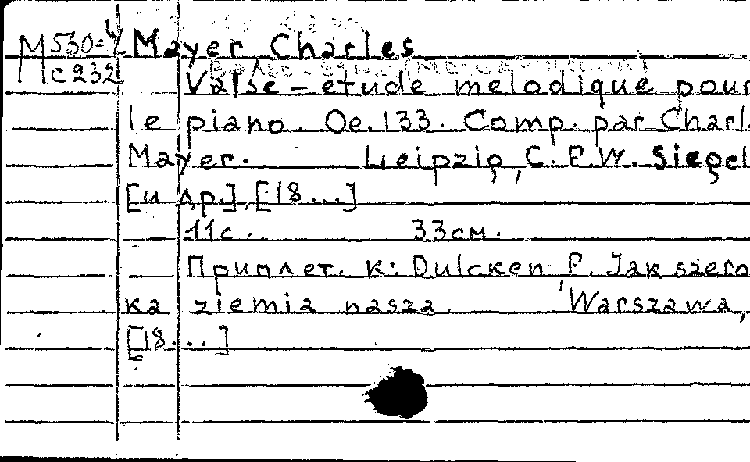 M530-4 Mayer, Charles
M c232
Valse-etude melodique pour
le piano. Oe.133. Comp. par Charl
Mayer. Leipzig, C. F.W. Siegel
[и др.], [18...]
11с. 33см.
Приплет. к: Dulcken F. Jak szero
ka ziemia nasza. Warszawa,
[18...]